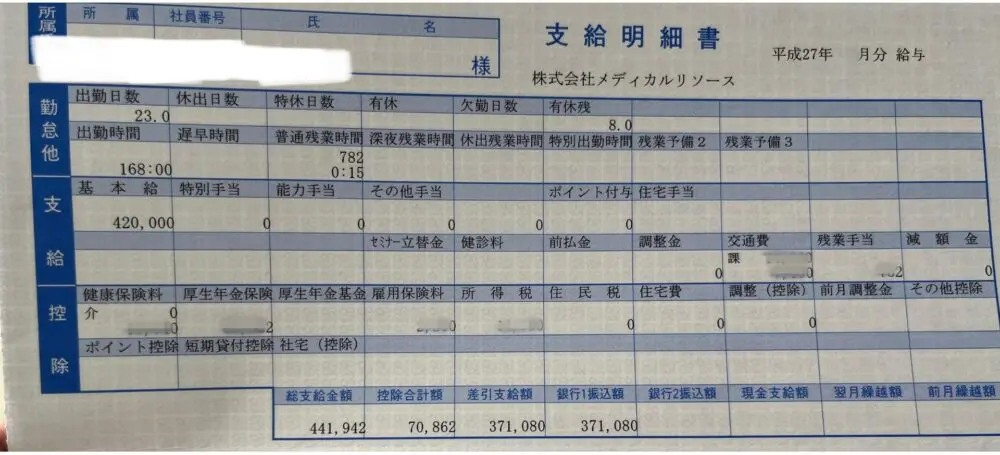 所属
所 属 社員番号 氏 名
様
支給明細書
平成27年 月分 給与
株式会社メディカルリソース
勤怠他
出勤日数 休出日数 特休日数 有休 欠勤日数 有休残
23.0 8.0
出勤時間 遅早時間 普通残業時間 深夜残業時間 休出残業時間 特別出勤時間 残業予備2 残業予備3
782
168:00 0:15
支給
基本給 特別手当 能力手当 その他手当 ポイント付与 住宅手当
420,000 0 0 0 0 0
セミナー立替金 健診料 前払金 調整金 交通費 残業手当 減額金
課
0 0
控除
健康保険料 厚生年金保険 厚生年金基金 雇用保険料 所得税 住民税 住宅費 調整(控除) 前月調整金 その他控除
介 0
0 0 0
ポイント控除 短期貸付控除 社宅(控除)
総支給金額 控除合計額 差引支給額 銀行1振込額 銀行2振込額 現金支給額 翌月繰越額 前月繰越額
441,942 70,862 371,080 371,080